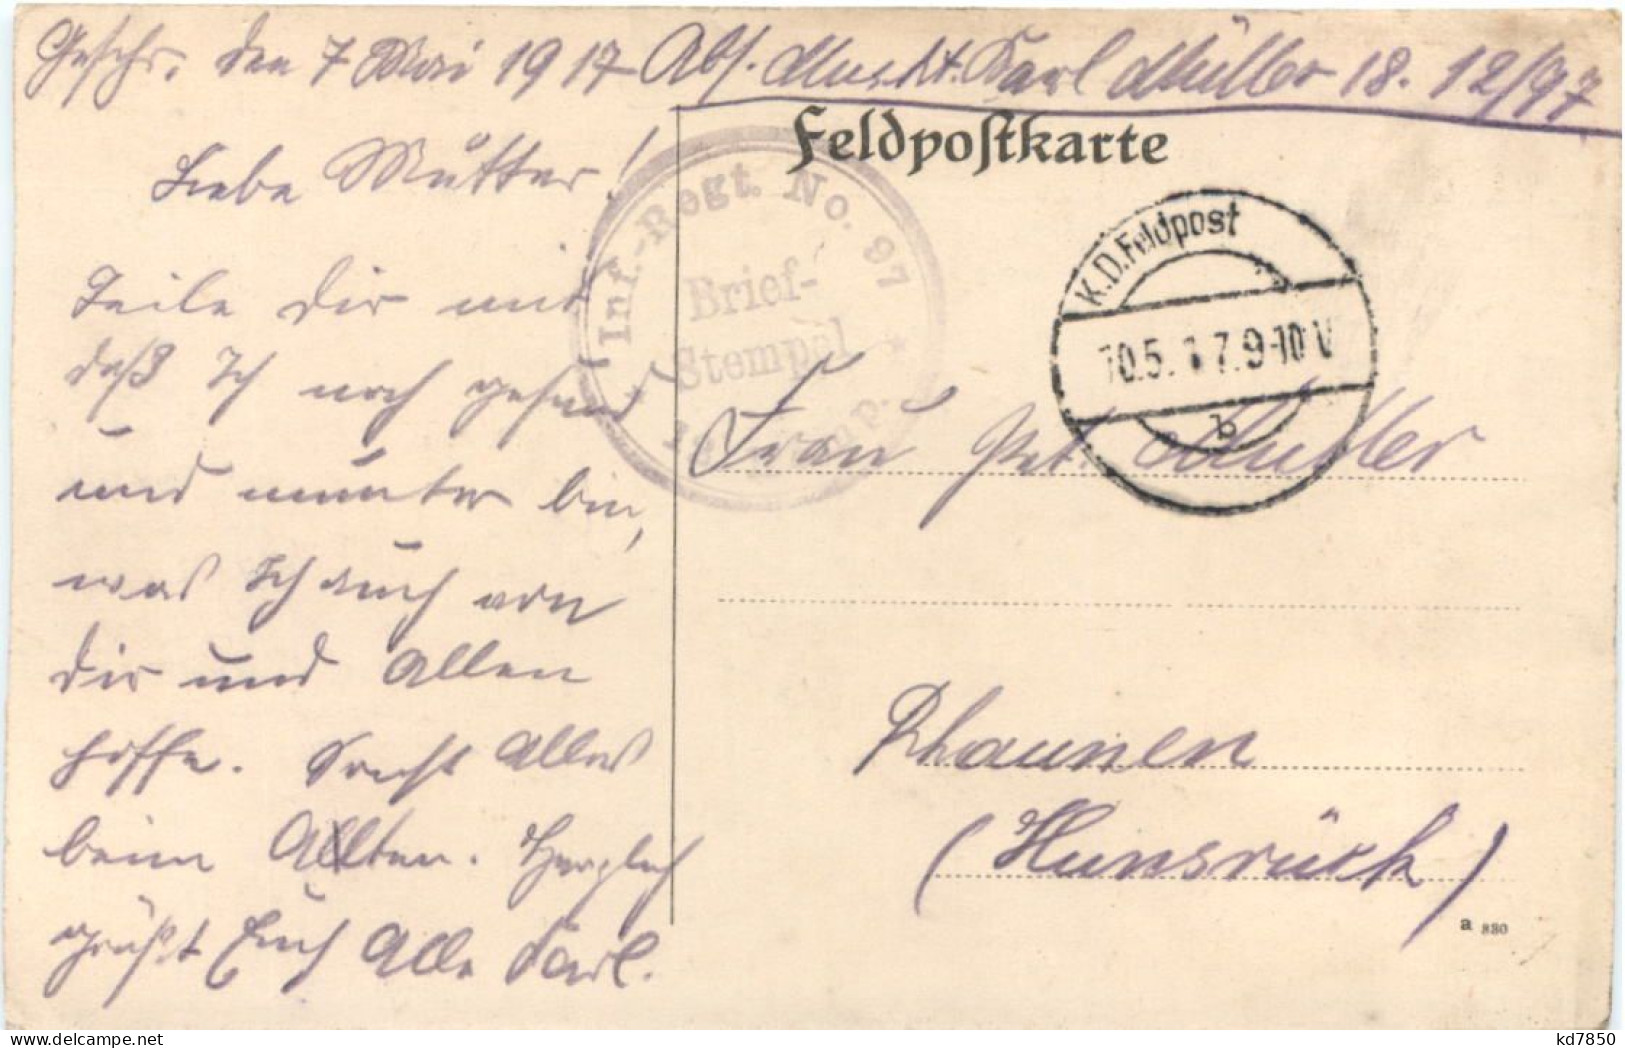 Geschr. den 7 Mai 1917 Abs. Muskt. Karl Müller 18. 12/97
Feldpostkarte
Liebe Mutter!
Teile Dir mit
daß Ich noch gesund
und munter bin,
was Ich auch von
Dir und Allen
hoffe. Sonst Alles
beim Allten. Herzlich
grüßt Euch Alle Karl.
Inf.-Regt. No. 97
Brief-
Stempel
K.D.Feldpost
10.5.17.9-10V
b
Frau Pet. Müller
Rhaunen
(Hunsrück)
a 880
kd7850